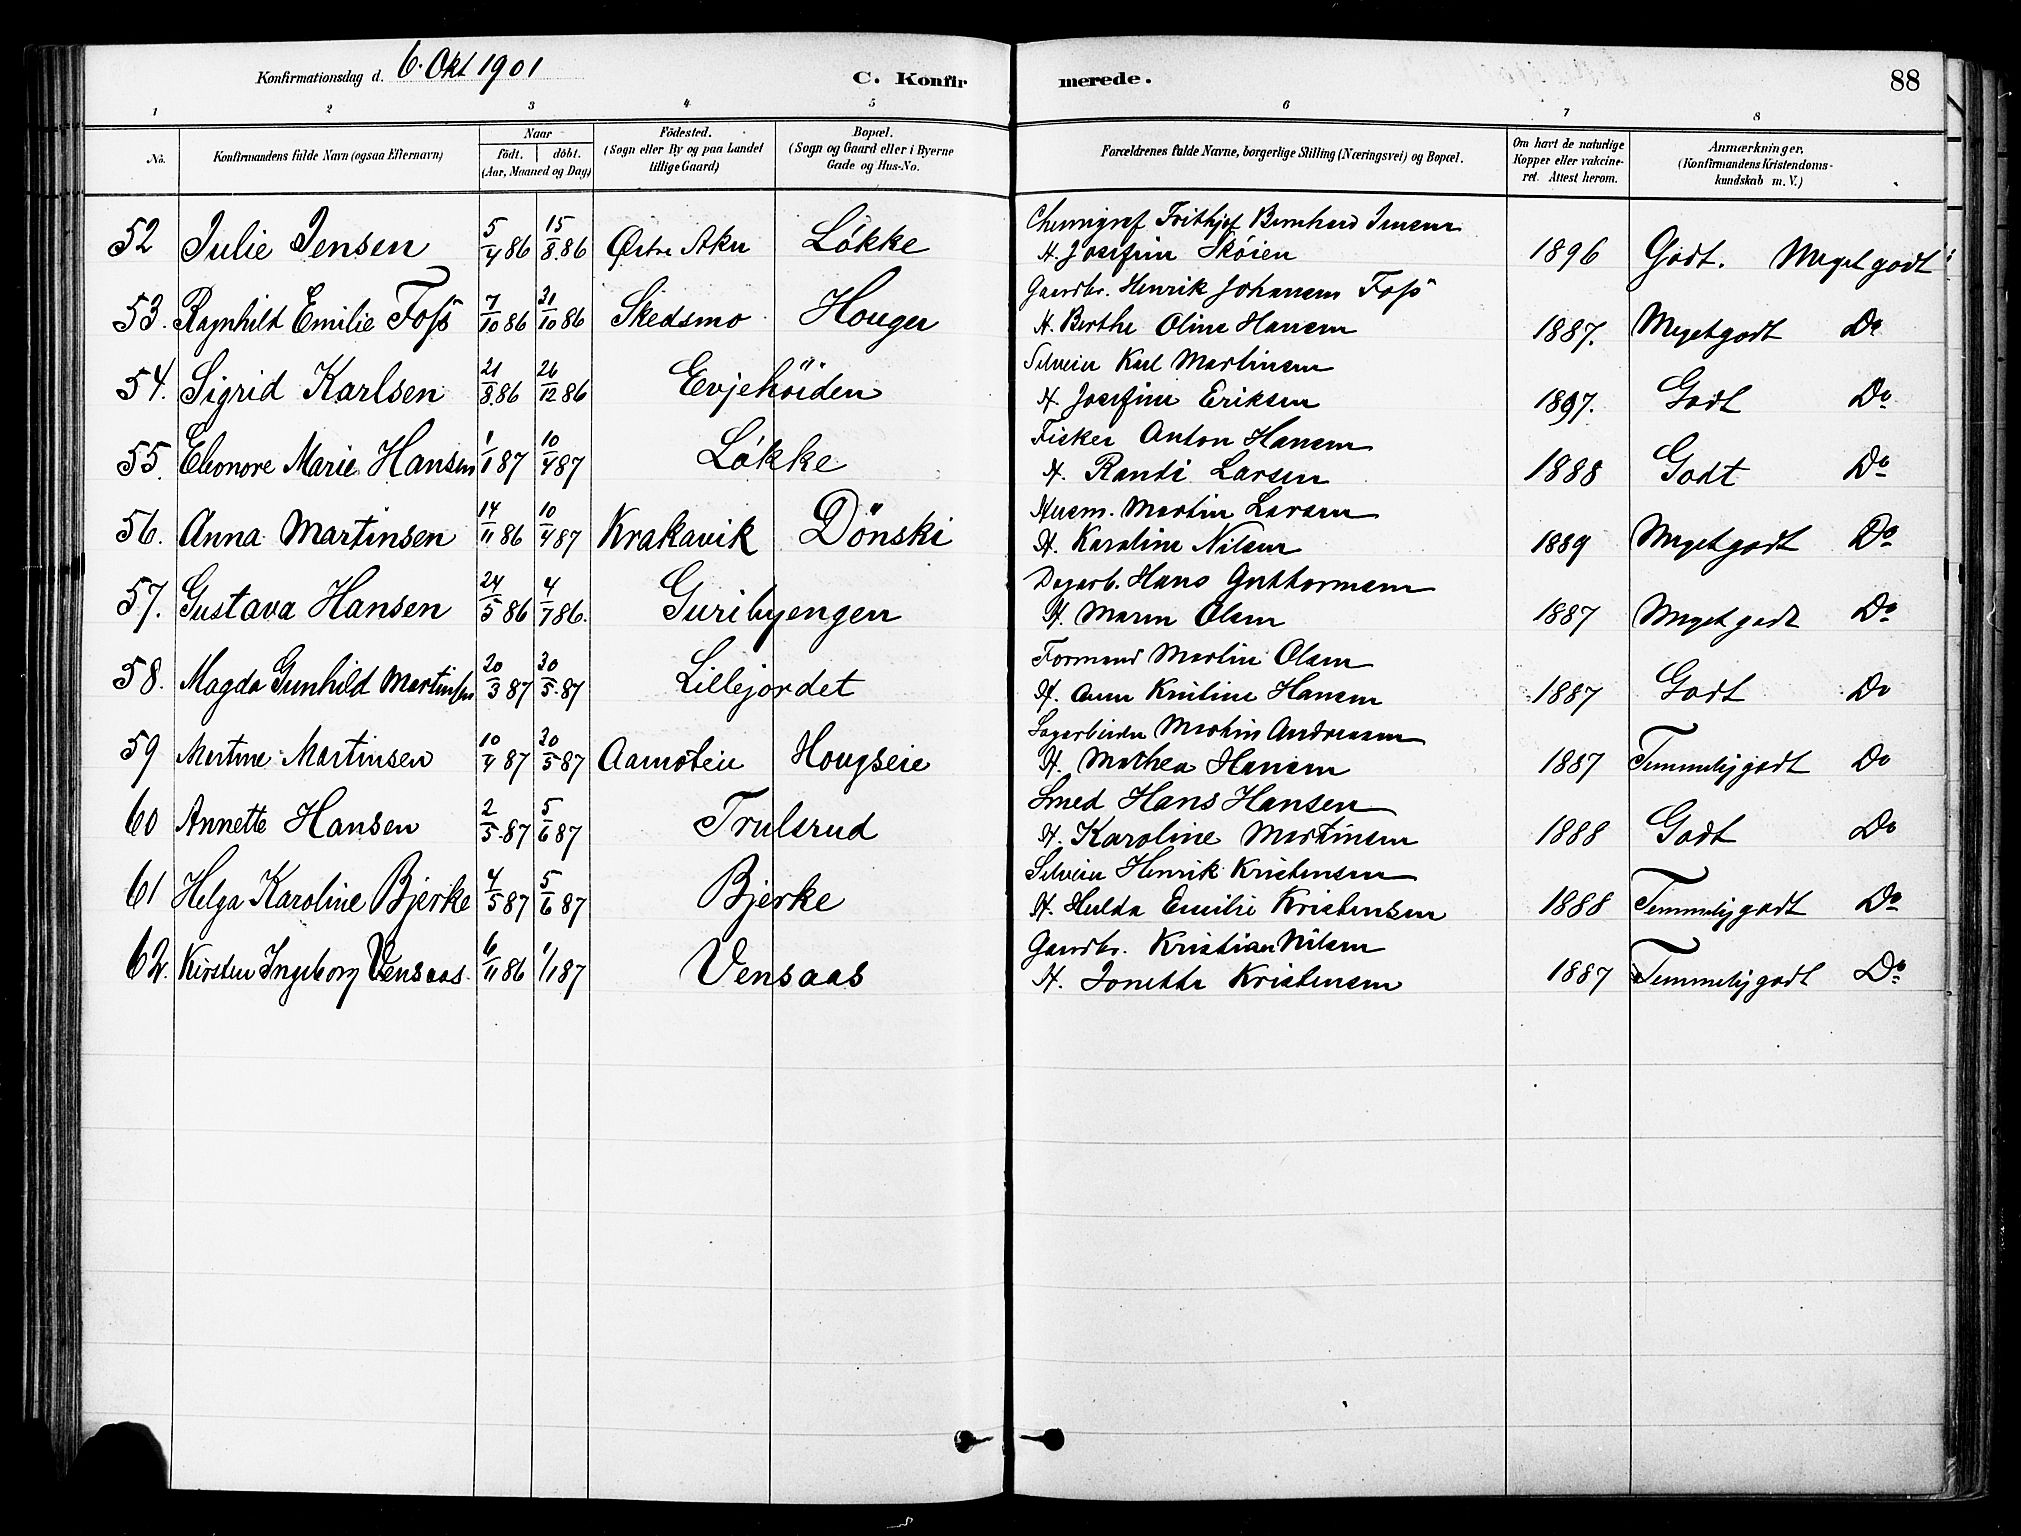 Konfirmationsdag d. 6. Okt 1901
C. Konfir
merede.
88
1 2 3 4 5 6 7 8
No.
Konfirmandens fulde Navn (ogsaa Efternavn)
Naar
födt. döbt.
(Aar, Maaned og Dag)
Födested.
(Sogn eller By og paa Landet
tillige Gaard)
Bopæl.
(Sogn og Gaard eller i Byerne
Gade og Hus-No.
Forældrenes fulde Navne, borgerlige Stilling (Næringsvei) og Bopæl.
Om havt de naturlige
Kopper eller vakcine-
ret. Attest herom.
Anmærkninger,
(Konfirmandens Kristendoms-
kundskab m. V.)
52 Julie Jensen 5/4 86 15/8.86 Østre Aker Løkke
Chemigraf Frithjof Bernhard Jensen
H. Josefine Skøien 1896 Godt. Meget godt
53. Ragnhild Emilie Foss 7/10 86 31/10 86 Skedsmo Houger
Gaardbr. Henrik Johansen Foss
H. Berthe Oline Hansen 1887. Meget godt Do
54. Sigrid Karlsen 21/8.86 26/12 86 Evjehöiden
Selveier Karl Martinsen
H. Josefine Eriksen 1897. Godt Do
55. Eleonore Marie Hansen 1/1 87 10/4 87 Løkke
Fisker Anton Hansen
H. Randi Larsen 1888 Godt Do
56. Anna Martinsen 14/11 86 10/4 87 Krakavik Dönski
Husm. Martin Larsen
H. Karoline Nilsen 1889 Meget godt Do
57. Gustava Hansen 24/5 86 4/7 86. Guribyengen
Dagarb. Hans Guttormsen
H. Maren Olsen 1887 Meget godt Do
58. Magda Gunhild Martinsen 20/3 87 30/5.87 Lillejordet
Formand Martin Olsen
H. Anne Kristine Hansen 1887 Godt Do
59 Martine Martinsen 10/4 87 30/5 87 Aamodteie Hougseie
Sagarbeider Martin Andreassen
H. Mathea Hansen 1887 Temmelig godt Do
60 Annette Hansen 2/5.87 5/6 87 Trulsrud
Smed Hans Hansen
H. Karoline Martinsen 1888 Godt Do
61 Helga Karoline Bjerke 4/5 87 5/6 87 Bjerke
Selveier Henrik Kristensen
H. Hulda Emilie Kristensen 1888 Temmelig godt Do
62. Kirsten Ingeborg Vensaas. 6/11 86 1/1 87 Vensaas
Gaardbr. Kristian Nilsen
H. Jonette Kristensen 1887 Temmelig godt Do